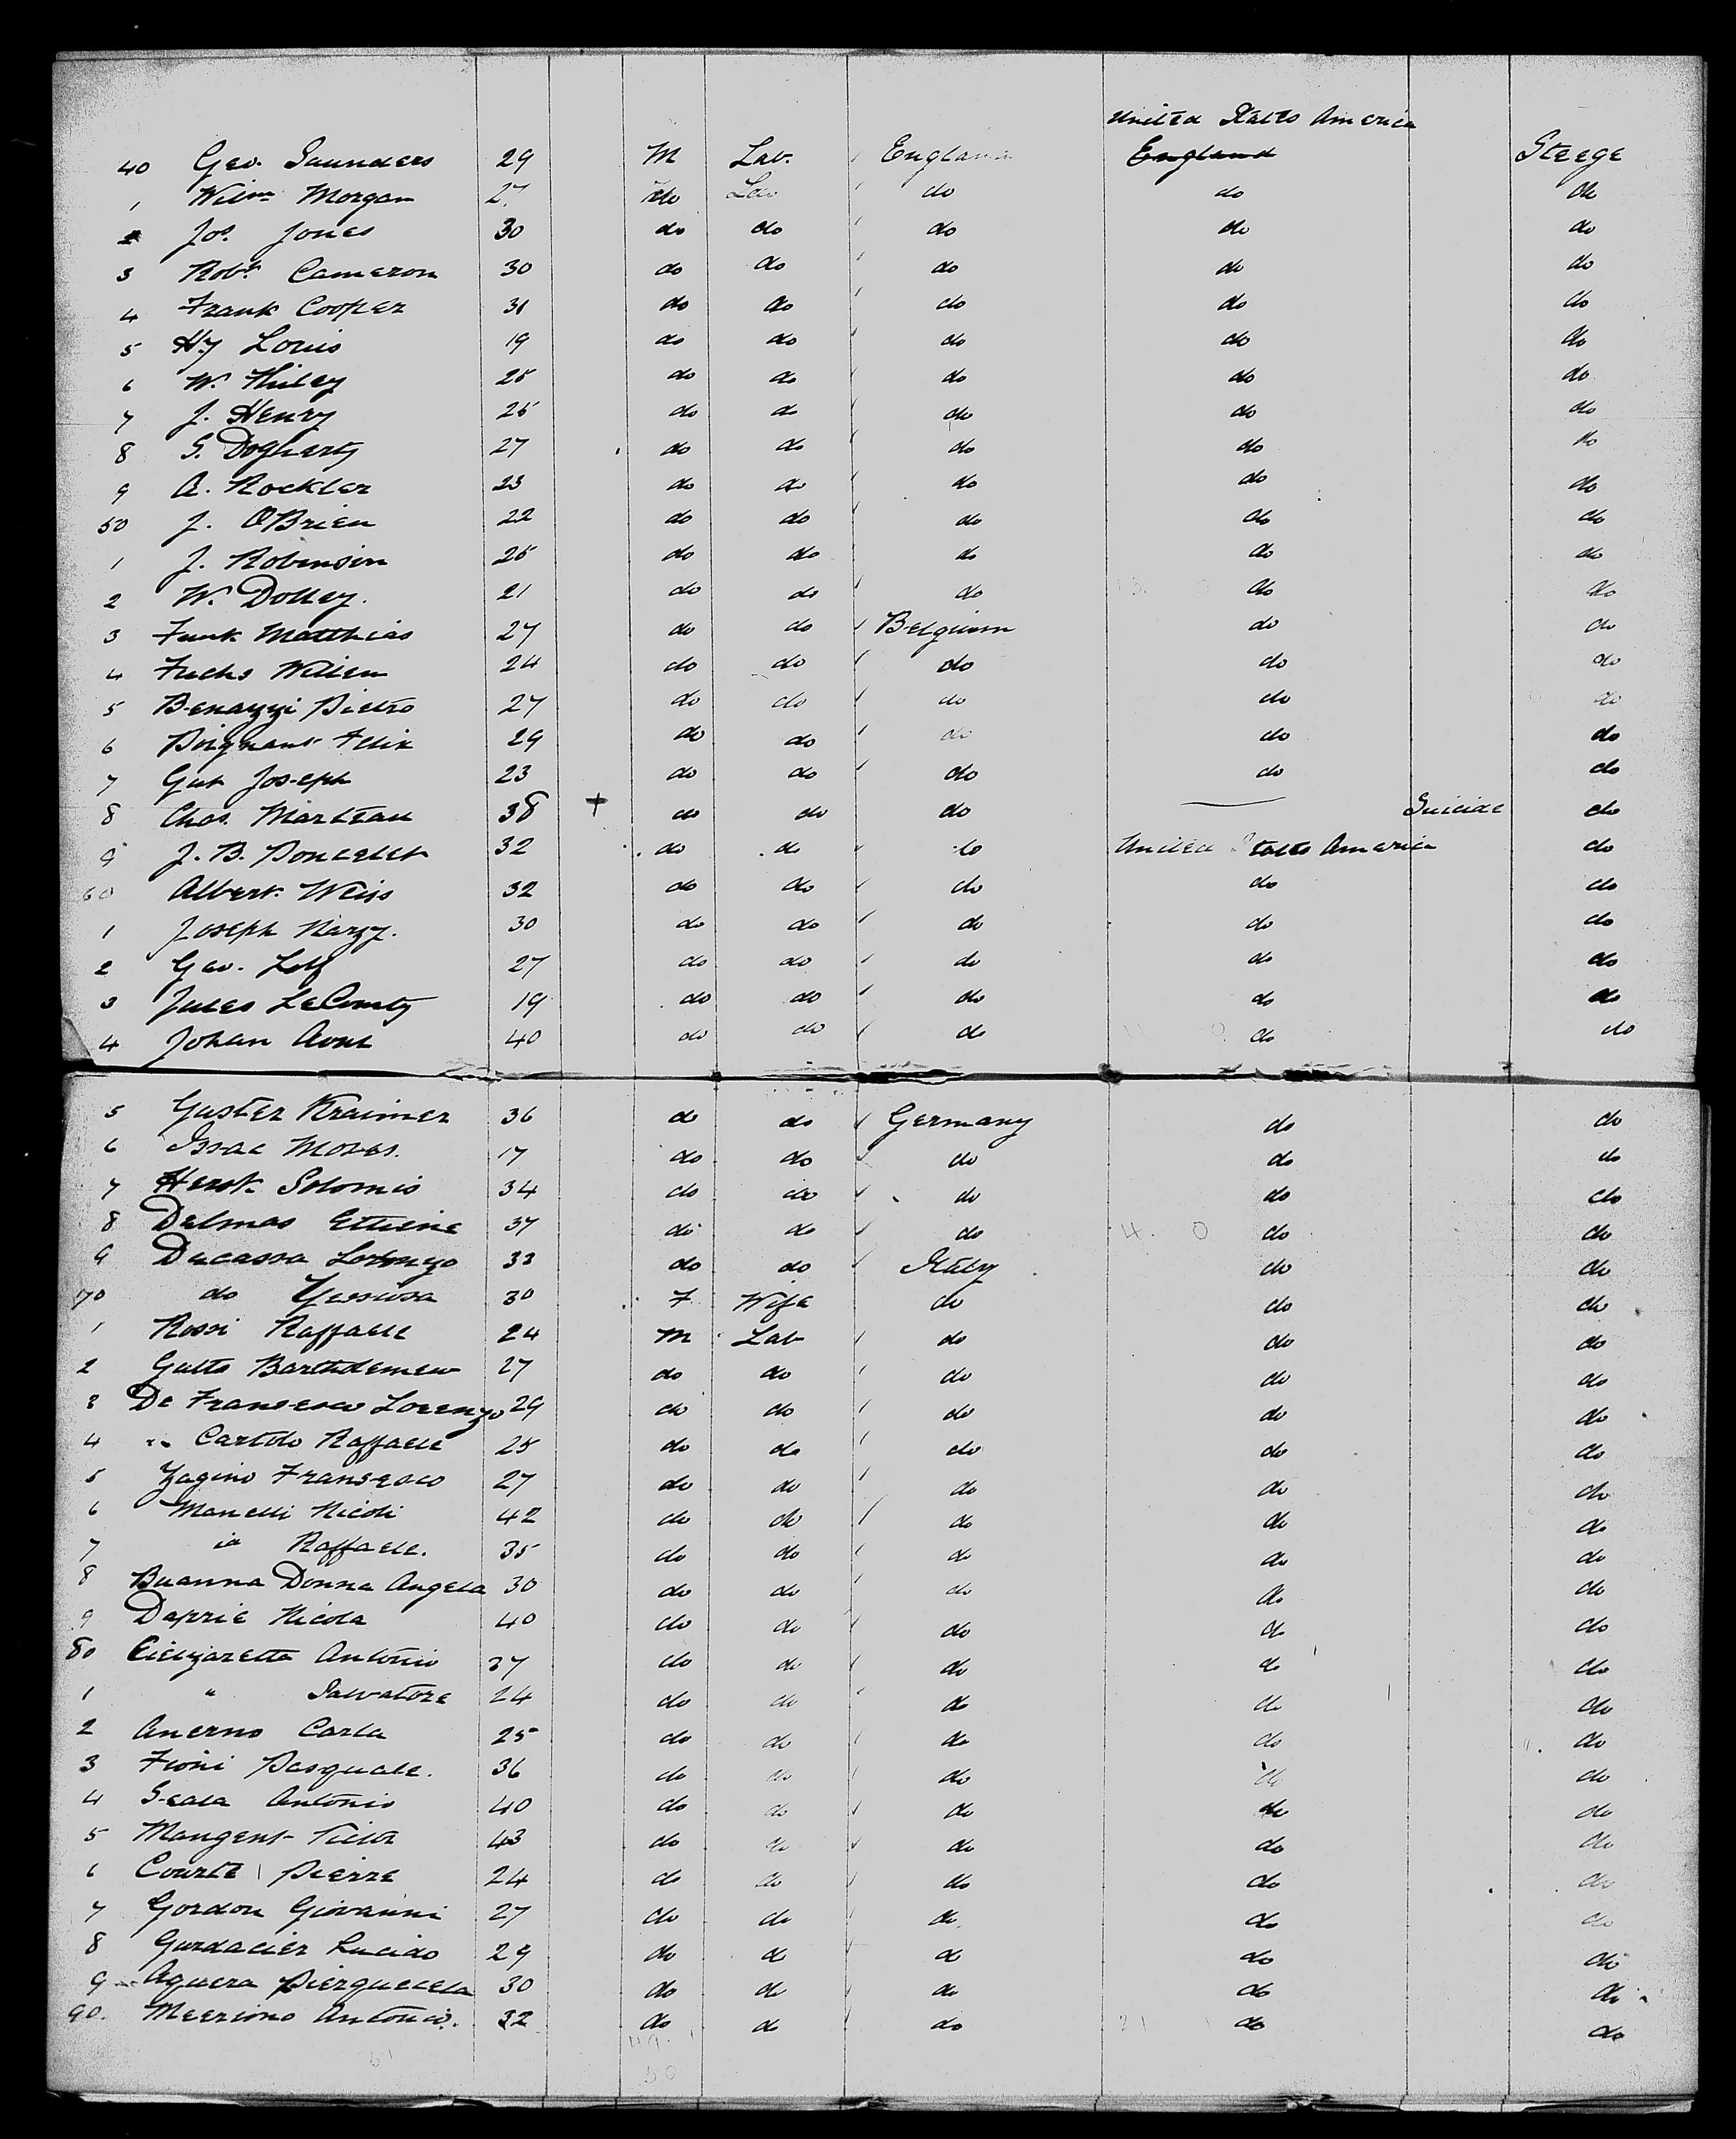 United States America
40 Geo. Saunders 29 M Lab. England England Steege
1 Willm Morgan 27 do Lab do do do
2 Jos. Jones 30 do do do do do
3 Robt Cameron 30 do do do do do
4 Frank Cooper 31 do do do do do
5 Hy Louis 19 do do do do do
6 W. 25 do do do do do
7 J. Henry 25 do do do do do
8 G. Dogherty 27 do do do do do
9 A. Rockler 23 do do do do do
50 J. OBrien 22 do do do do do
1 J. Robinson 25 do do do do do
2 W. Dolley. 21 do do do do do
3 Funk Matthias 27 do do Belgium do do
4 Fuchs Willem 24 do do do do do
5 Benazzi Pietro 27 do do do do do
6 Poignant Felix 29 do do do do do
7 Gut Joseph 23 do do do do do
8 Chas. Marteau 38 + do do do — Suicide do
9 J. B. Poncelet 32 do do do United States America do
60 Albert Weiss 32 do do do do do
1 Joseph Narzy. 30 do do do do do
2 Geo. 27 do do do do do
3 Jules LeComty 19 do do do do do
4 Johan 40 do do do do do
5 Guster Kraimer 36 do do Germany do do
6 Isaac Moses. 17 do do do do do
7 Solomis 34 do do do do do
8 Delmas Ettiene 37 do do do do do
9 Ducassa Lorenzo 33 do do Italy do do
70 do 30 F Wife do do do
1 Rossi Raffaele 24 M Lab do do do
2 Gallo Bartholemew 27 do do do do do
3 De Fransesco Lorenzo 29 do do do do do
4 " Cartolo Raffaele 25 do do do do do
5 Zagino Fransesco 27 do do do do do
6 Manelli Nicoli 42 do do do do do
7 id Raffaele. 35 do do do do do
8 Buanna Donna Angela 30 do do do do do
9 Daprie Nicola 40 do do do do do
80 Antonio 37 do do do do do
1 " Salvatore 24 do do do do do
2 Anerno Carla 25 do do do do do
3 Fioni Pasquale. 36 do do do do do
4 Scala Antonio 40 do do do do do
5 Mangent Victor 43 do do do do do
6 Courte Pierre 24 do do do do do
7 Gordon Giovanni 27 do do do do do
8 Gurdacier Lucido 29 do do do do do
9 Aguera 30 do do do do do
90. Antonio. 32 do do do do do